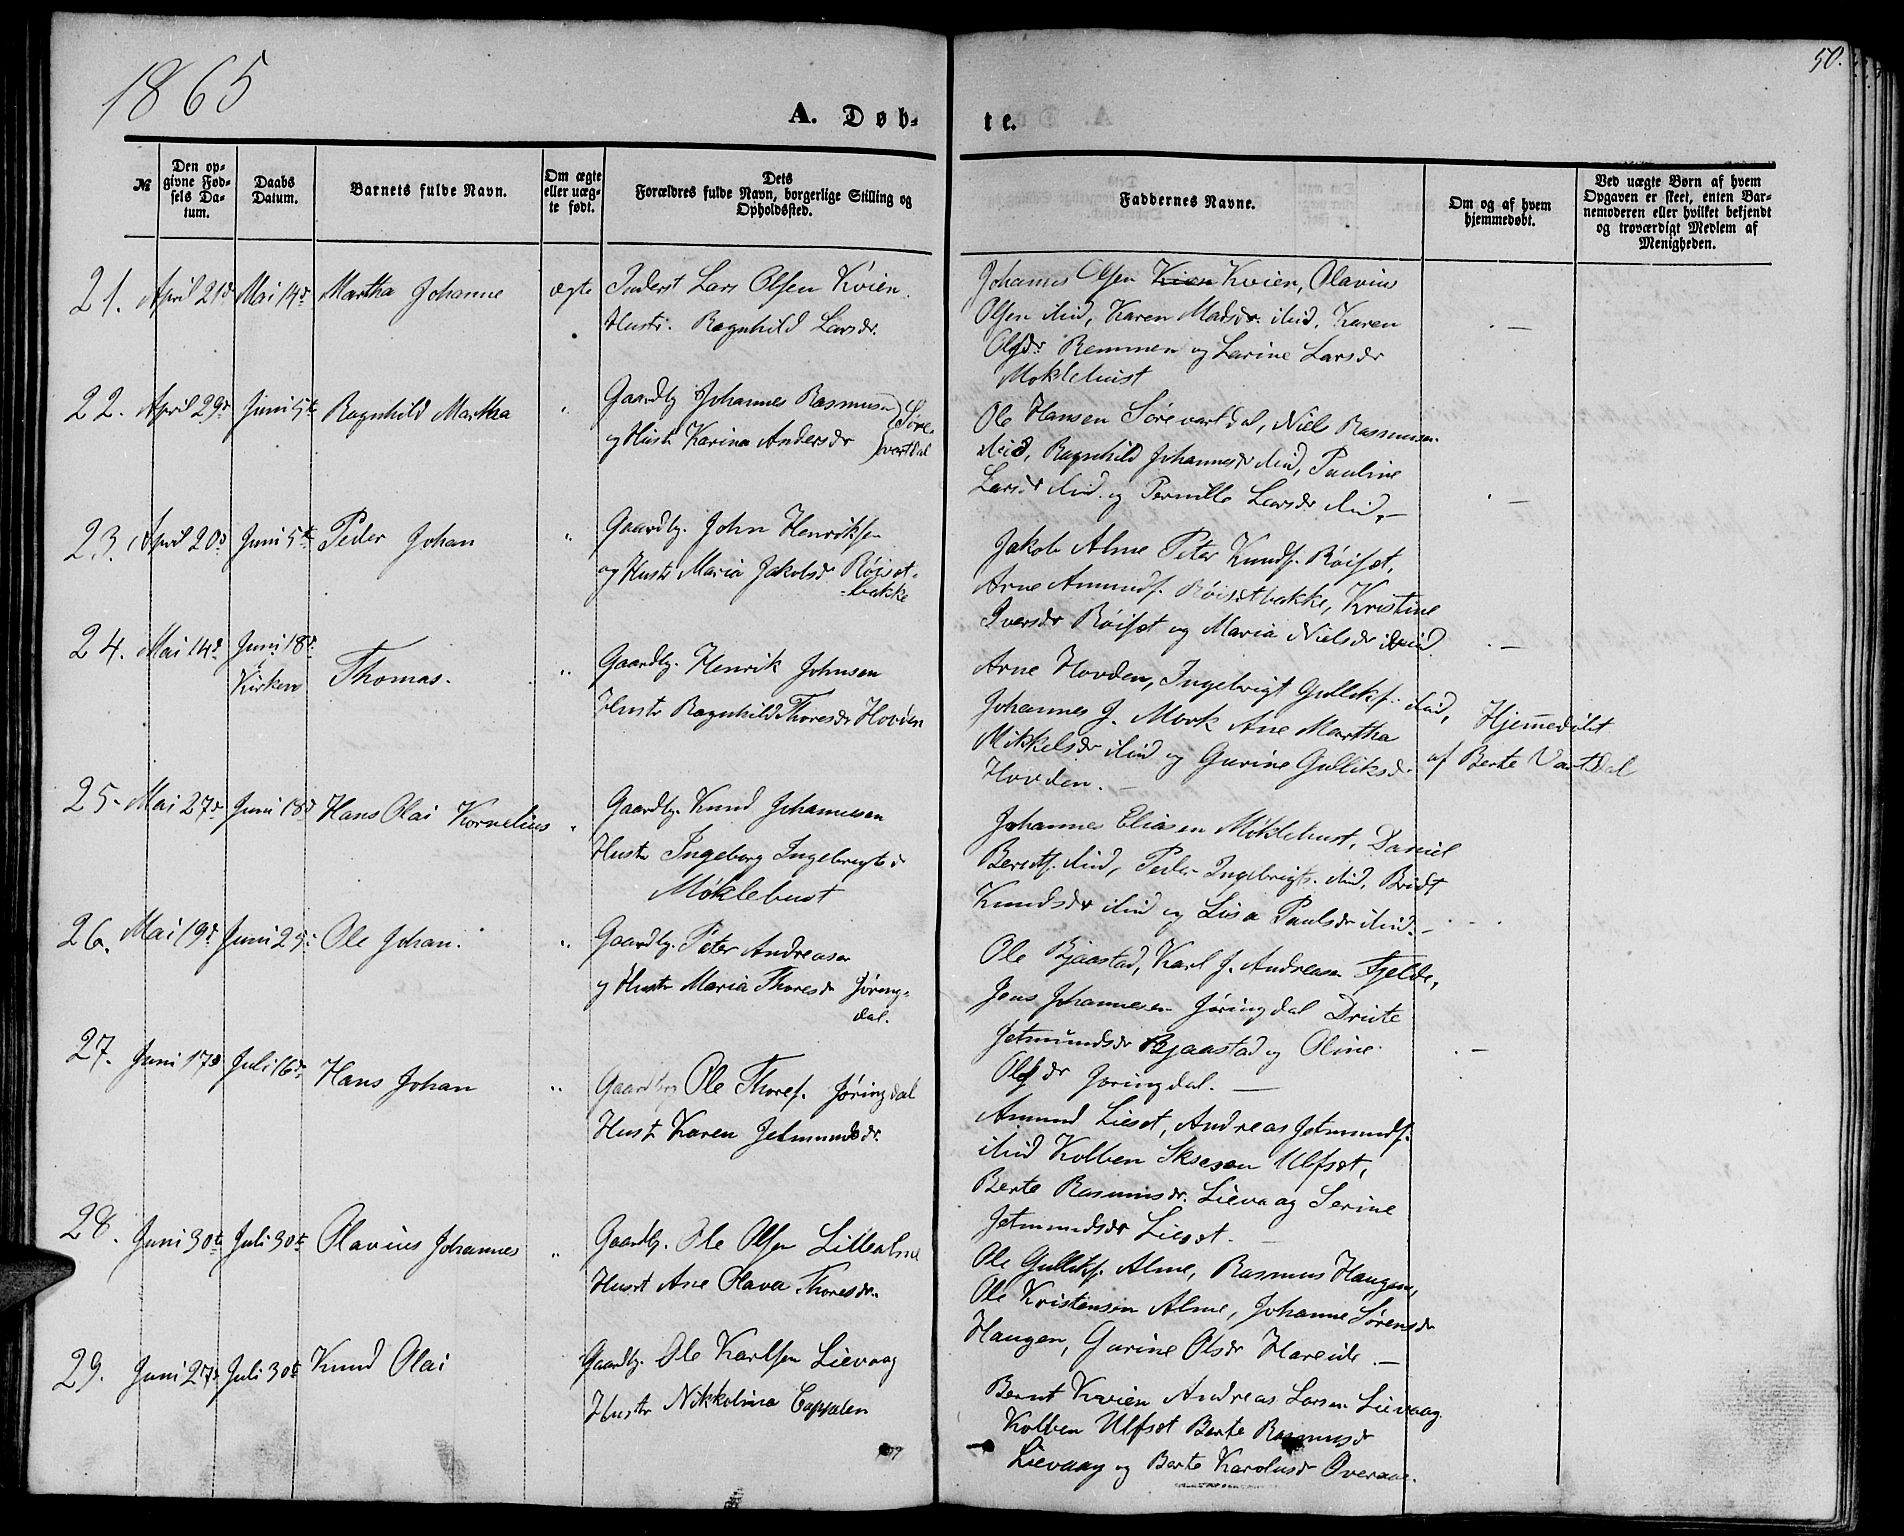 1865
50.
A. Døb-
te.
№
Den op-
givne Fød-
sels Da-
tum.
Daabs
Datum.
Barnets fulde Navn.
Om ægte
eller uæg-
te født.
Dets
Forældres fulde Navn, borgerlige Stilling og
Opholdssted.
Faddernes Navne.
Om og af hvem
hjemmedøbt.
Ved uægte Børn af hvem
Opgaven er skeet, enten Bar-
nemoderen eller hvilket bekjendt
og troværdigt Medlem af
Menigheden.
21. April 21d Mai 14d Martha Johanne ægte Inderst Lars Olsen Kvien.
Hustr. Ragnhild Larsdr.
Johannes Olsen Kvien Kvien, Olavius
Olsen ibid, Karen Madsdr. ibid, Karen
Olsdr Remmen og Larine Larsdr
Moklebust
22. April 29d Juni 5te Ragnhild Martha " Gaardbr Johannes Rasmusen
og Hustr Karina Andersdr Søre-
vartdal
Ole Hansen Sørevartdal, Niels Rasmusen
ibid, Ragnhild Johannesdr ibid, Pauline
Larsdr ibid. og Pernille Larsdr ibid,—
23. April 20d Juni 5te Peder Johan " Gaardbr. John Henriksen
og Hustr Maria Jakobsdr Röiset-
bakke
Jakob Alme Peter Knuds. Röiset,
Arne Amunds. Röisetbakke, Kristine
Iversdr Röiset og Maria Nielsdr ibid
24. Mai 14d Juni 18d
Kirken
Thomas. " Gaardbr. Henrik Johnsen
Hustr Ragnhild Thoresdr Hovden
Arne Hovden, Ingebrigt Gulliks. ibid,
Johannes J. Mork Ane Martha
Mikkelsdr ibid og Gurine Gulliksdr
Hovden.—
Hjemedöbt
af Berte Vartdal
25. Mai 27d Juni 18d Hans Olai Kornelius " Gaardbr. Knud Johannesen
Hustr Ingeborg Ingebrigtsd
Møklebust
Johannes Eliasen Möklebust, Daniel
Berdts. ibid, Peder Ingebrigts. ibid, Bridt
Knudsdr ibid og Lisa Paulsdr ibid.—
26. Mai 19d Juni 25. Ole Johan. " Gaardbr. Peter Andreasen
og Hustr Maria Thoresdr Jøring-
dal.
Ole Bjaastad, Karl J. Andreasen Fjelde,
Jens Johannesen Jøringdal Drivte
Jetmundsdr Bjaastad og Oline
Olsdr Jøringdal.—
27. Juni 17d Juli 16d Hans Johan " Gaardbr Ole Thores. Jøringdal
Hustr Karen Jetmundsdr.
Amund Lieset, Andreas Jetmunds.
ibid Kolben Ulfsæt,
Berte Rasmusdr. Lievaag Serine
Jetmundsdr Lieset.—
28. Juni 30te Juli 30te Olavius Johannes " Gaardbr. Ole Olsen Lillealme
Hustr Ane Olava Thoresdr.
Ole Gulliks. Alme, Rasmus Haugen,
Ole Kristensen Alme, Johanne Sørensdr
Haugen, Gurine Olsdr Hareide.—
29. Juni 27d Juli 30te Knud Olai Gaardbr. Ole Karlsen Lievaag
Hustr Nikkoline Cappelen
Bernt Kvien Andreas Larsen Lievaag
Kolben Ulfsæt Berte Rasmusdr
Lievaag og Berte Karolusdr Overaae.